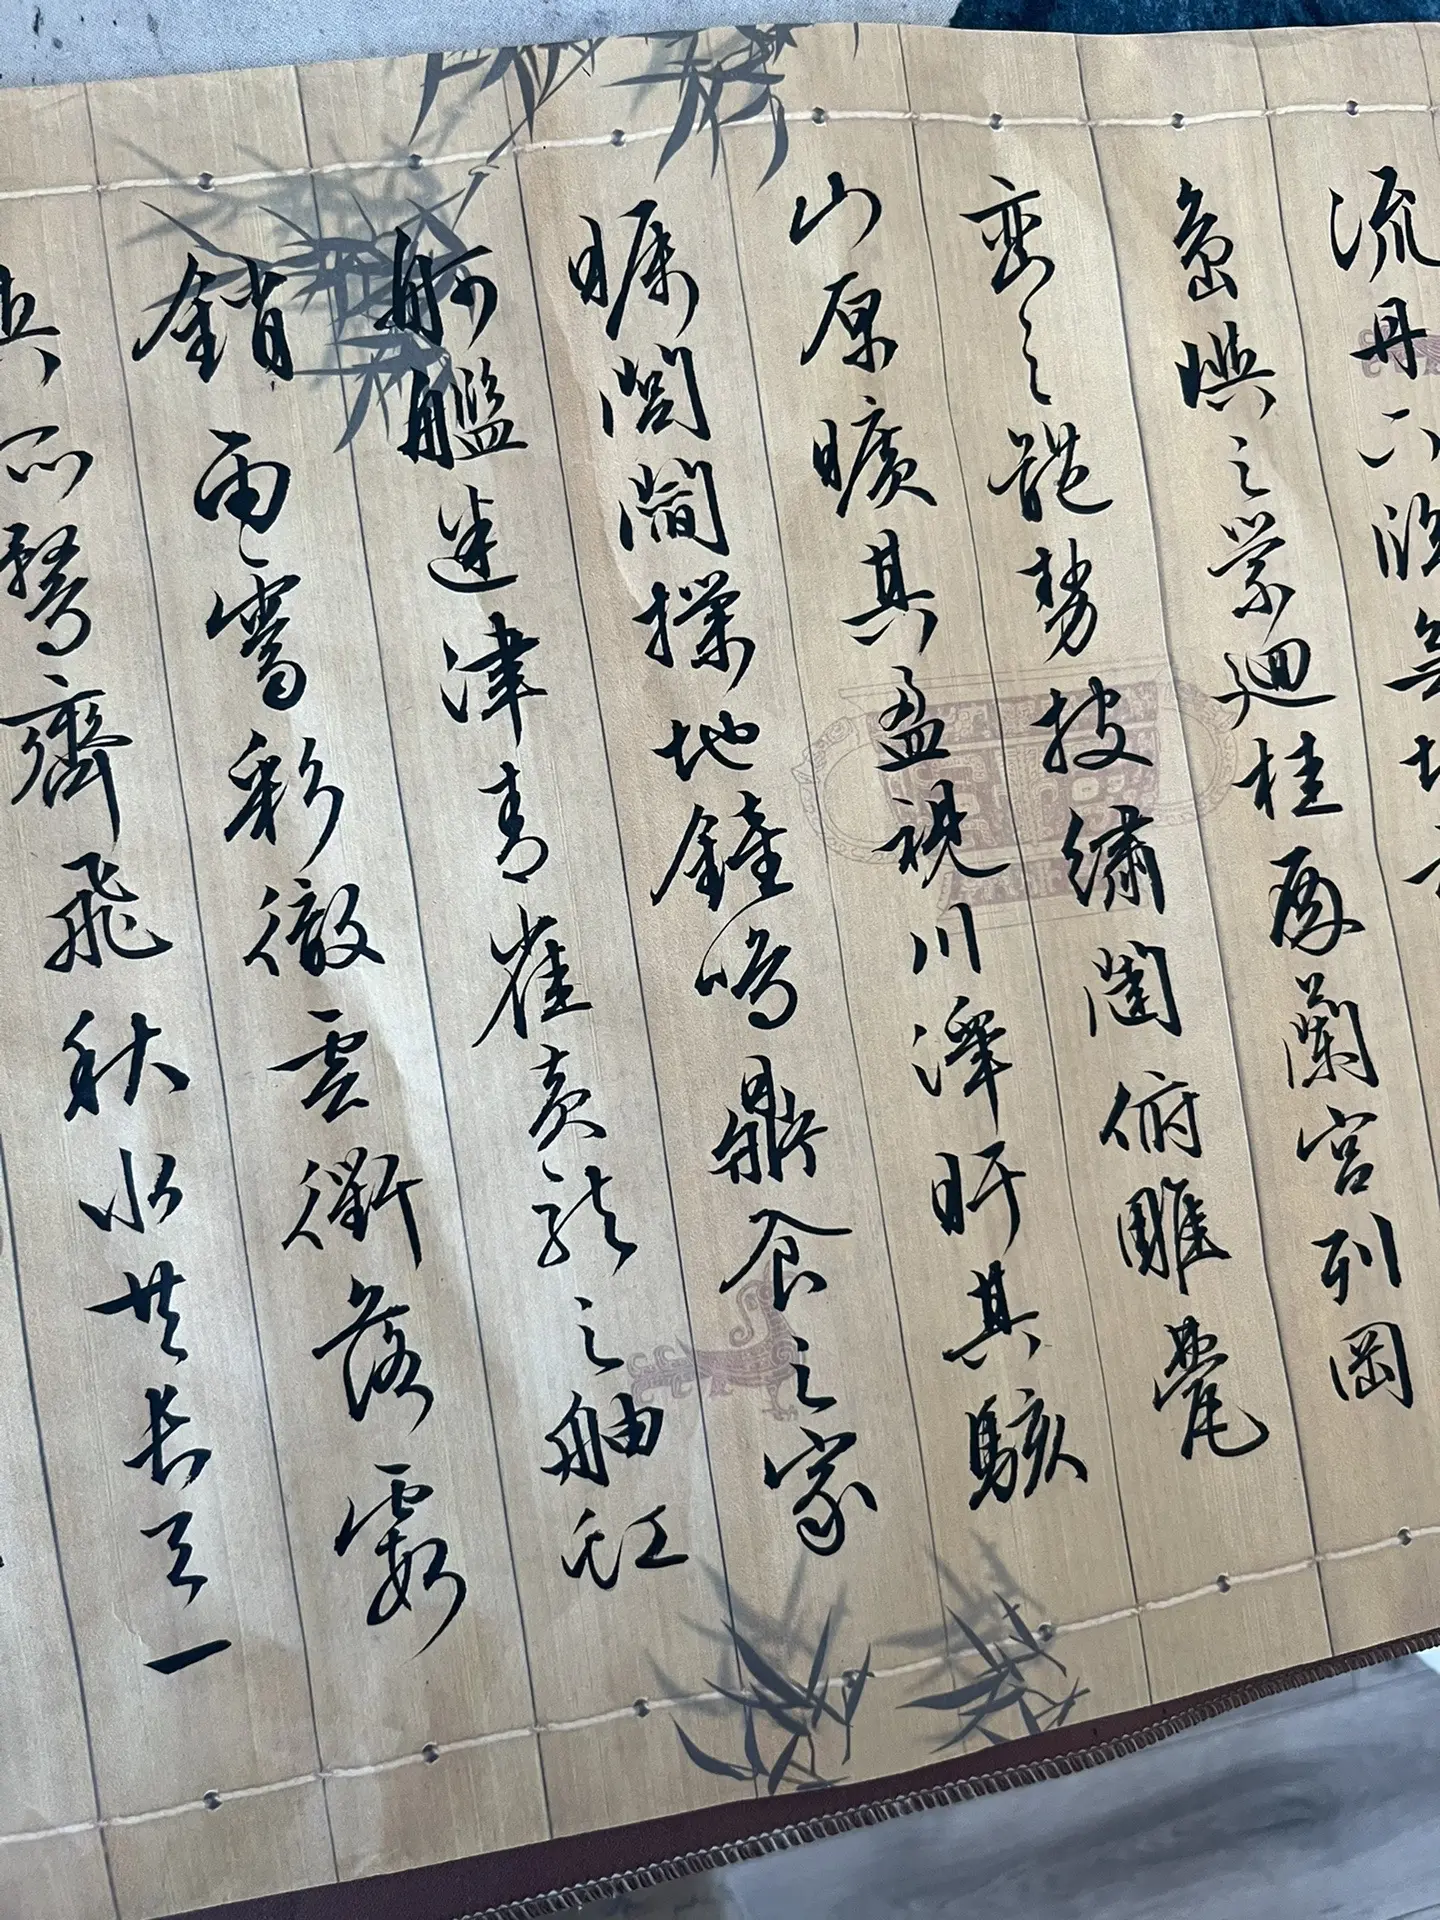 流丹下臨無地
島嶼之縈迴桂殿蘭宮列岡
巒之體勢披繡闥俯雕甍
山原曠其盈視川澤盱其駭
矚閭閻撲地鐘鳴鼎食之家
舸艦迷津青雀黃龍之舳虹
銷雨霽彩徹雲衢落霞
與孤鶩齊飛秋水共長天一